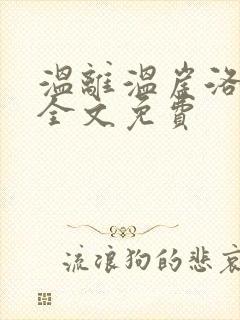 温離温崖洛
全文免費
流浪狗的悲哀